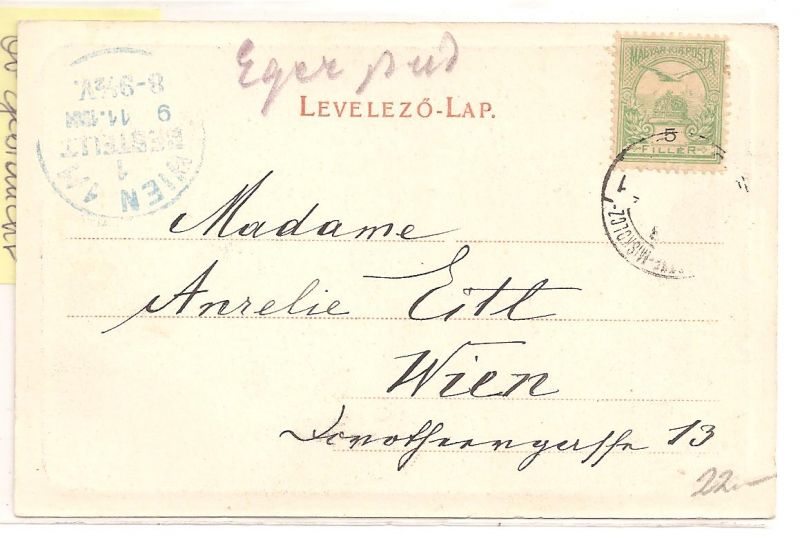 Eger pud
LEVELEZŐ-LAP.
MAGYAR·KIR·POSTA
5
FILLÉR
-MISKOLCZ-
WIEN 1/1
1
BESTELLT
9 11.
8-9½V.
Madame
Aurelie Eitl
Wien
Dorotheergasse 13
22—